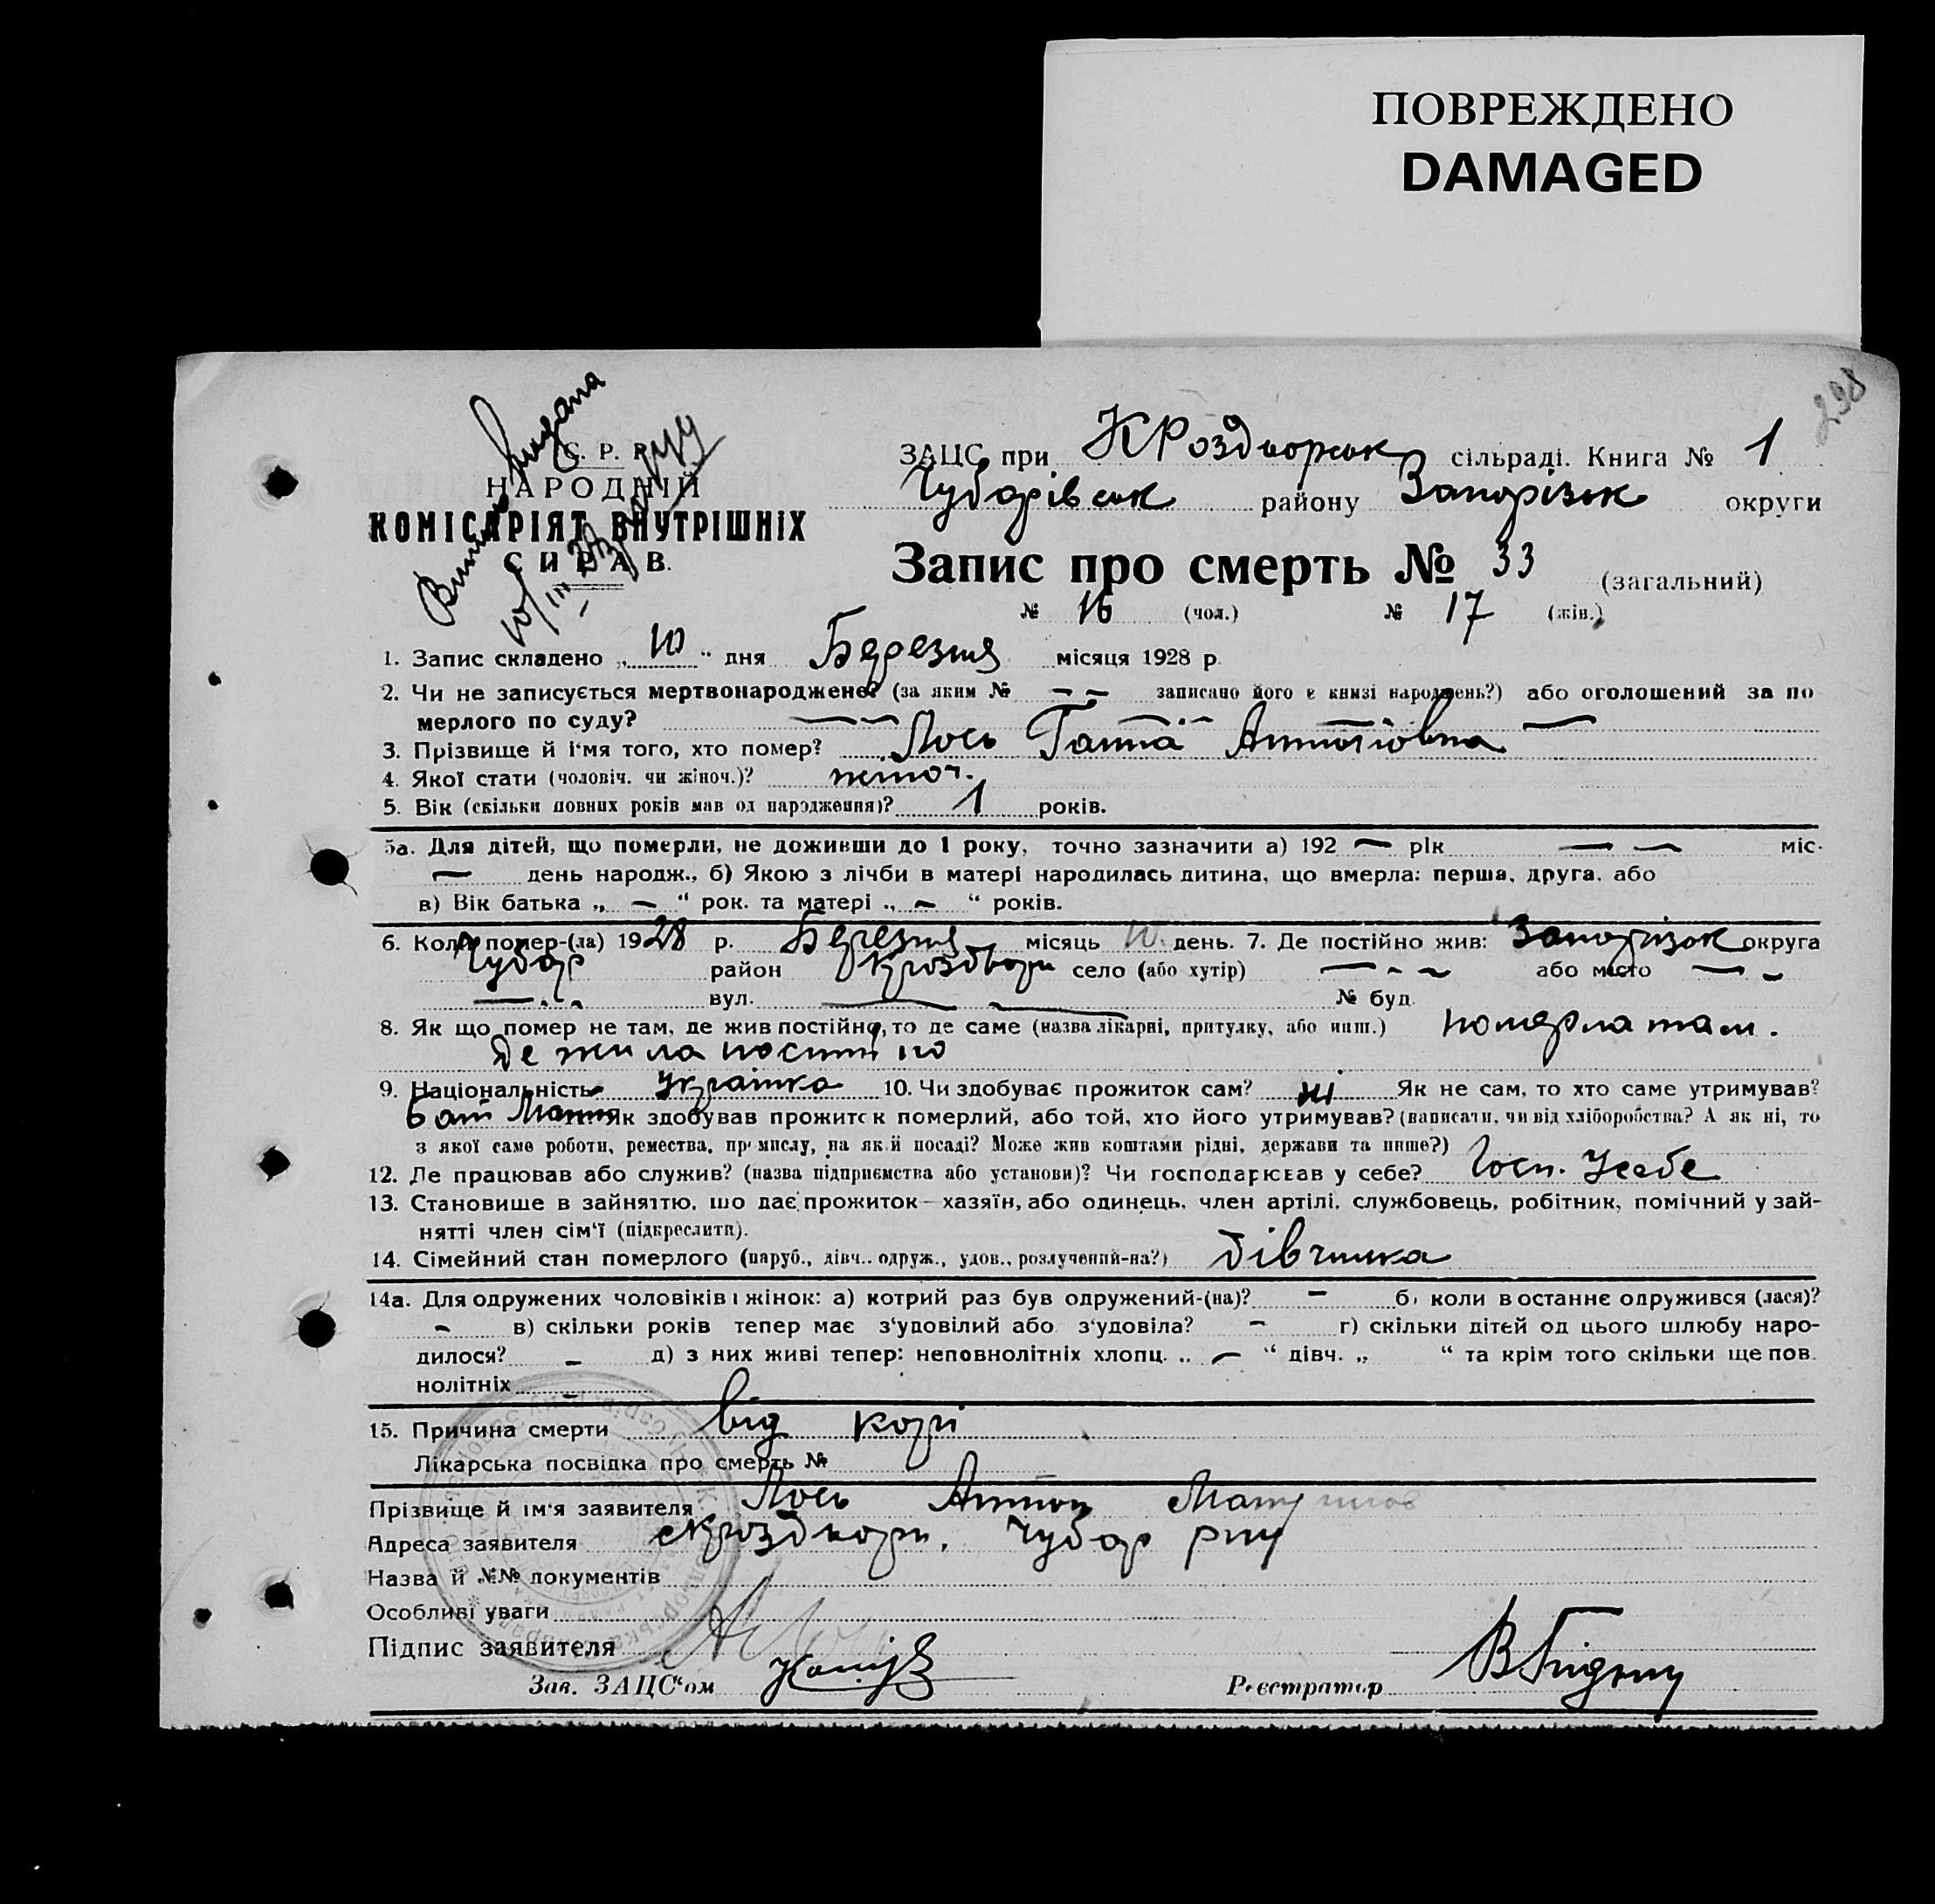 ПОВРЕЖДЕНО
DAMAGED
298
С. Р. Р.
НАРОДНІЙ
КОМІСАРІЯТ ВНУТРІШНІХ
СПРАВ.
ЗАЦС при КРоздворськ сільраді. Книга № 1
Чубарівськ району Запорізьк округи
Запис про смерть № 33 (загальний)
№ 16 (чол.) № 17 (жін.)
1. Запис складено „ 10 “ дня Березня місяця 1928 р.
2. Чи не записується мертвонароджене? (за яким № — — записано його в книзі народжень?) або оголошений за по
мерлого по суду? — —
3. Прізвище й і'мя того, хто помер? Лось Ганна Антонівна
4. Якої стати (чоловіч. чи жіноч.)? жіноч.
5. Вік (скільки повних років мав од народження)? 1 років.
5а. Для дітей, що померли, не доживши до 1 року, точно зазначити а) 192 — рік — — міс.
— день народж., б) Якою з лічби в матері народилась дитина, що вмерла: перша, друга, або
в) Вік батька „ — “ рок. та матері „ — “ років.
6. Коли помер-(ла) 1928 р. Березня місяць 10 день. 7. Де постійно жив: Запорізьк округа
Чубар район Кроздвори село (або хутір) — - - або місто — -
— - - вул. — — № буд.
8. Як що помер не там, де жив постійно, то де саме (назва лікарні, притулку, або инш.) померла там.
де жила постійно
9. Національність Українка 10. Чи здобуває прожиток сам? ні Як не сам, то хто саме утримував?
Бать 11. Як здобував прожиток померлий, або той, хто його утримував? (написати, чи від хліборобства? А як ні, то
з якої саме роботи, ремества, промислу, на якій посаді? Може жив коштами рідні, держави та инше?)
12. Де працював або служив? (назва підприємства або установи)? Чи господарював у себе? Госп. Усебе
13. Становище в зайняттю, що дає прожиток—хазяїн, або одинець, член артілі, службовець, робітник, помічний у зай-
нятті член сім'ї (підкреслити).
14. Сімейний стан померлого (паруб., дівч., одруж., удов., розлучений-на?) дівчинка
14а. Для одружених чоловіків і жінок: а) котрий раз був одружений-(на)? — б) коли востаннє одружився (лася)?
- в) скільки років тепер має з'удовілий або з'удовіла? — г) скільки дітей од цього шлюбу наро-
дилося? — д) з них живі тепер: неповнолітніх хлопц. „ — “ дівч. „ “ та крім того скільки ще пов.
нолітніх
15. Причина смерти від корі
Лікарська посвідка про смерть №
Прізвище й ім'я заявителя Лось Антон
Адреса заявителя с Кроздвори, Чубар рну
Назва й №№ документів
Особливі уваги
Підпис заявителя
Зав. ЗАЦС'ом Реєстратор